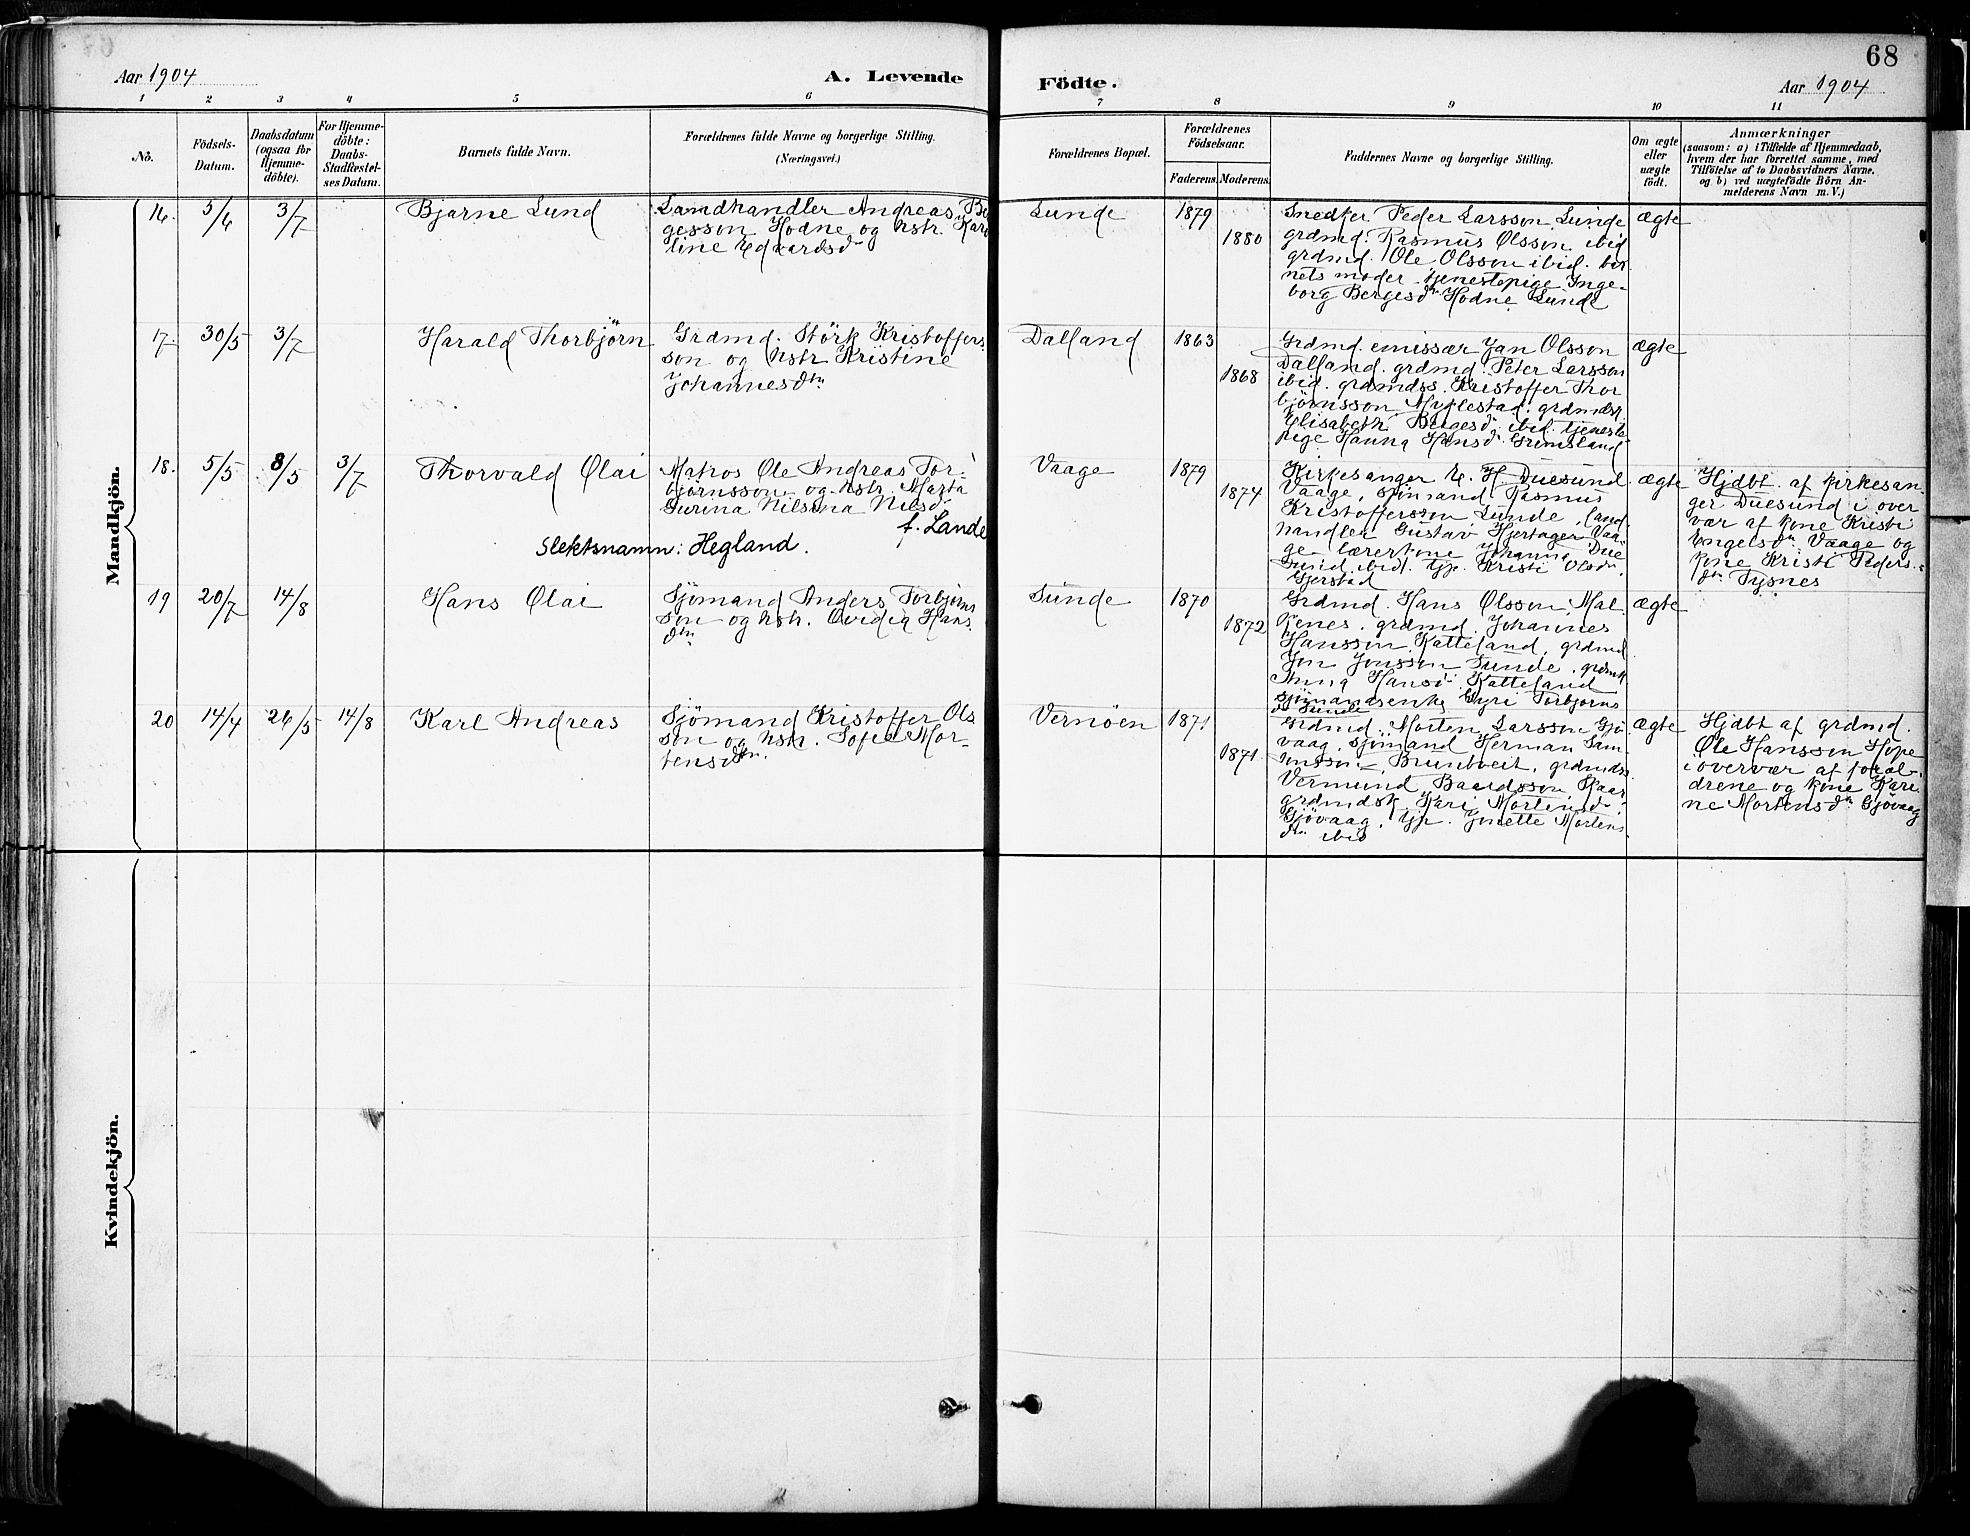 68
Aar 1904
A. Levende
Födte.
Aar 1904
1 2 3 4 5 6 7 8 9 10 11
No.
Födsels-
Datum.
Daabsdatum
(ogsaa for
Hjemme-
döbte).
For Hjemme-
döbte:
Daabs-
Stadfæstel-
ses Datum.
Barnets fulde Navn.
Forældrenes fulde Navne og borgerlige Stilling.
(Næringsvei.)
Forældrenes Bopæl.
Forældrenes
Födselsaar.
Faderens.
Moderens.
Faddernes Navne og borgerlige Stilling.
Om ægte
eller
uægte
födt.
Anmærkninger
(saasom: a) i Tilfælde af Hjemmedaab,
hvem der har forrettet samme, med
Tilföielse af to Daabsvidners Navne,
og b) ved uægtefödte Börn An-
melderens Navn m. V.)
Mandkjön.
16.
5/6
3/7
Bjarne Lund
Landhandler Andreas Ber
gesson Hodne og hstr. Karo
line Edvardsd
Lunde
1879
1880
Snedker Peder Larsson Lunde
grdmd. Rasmus Olsson ibid
grdmd. Ole Olsson ibid. bar
nets moder tjenestepige Inge-
borg Bergesdtr Hodne Lunde
ægte
17.
30/5
3/7
Harald Thorbjörn
Grdmd. Störk Kristoffers-
son og hstr Kristine
Johannesdtr
Dalland
1863
1868
Grdmd. emissær Jan Olsson
Dalland. grdmd. Peter Larsson
ibid. grdmdss. Kristoffer Thor
björnsson Myklestad. grdmdsk.
Elisabeth Bergesd ibid. tjeneste-
pige Hanna Hansd Grimsland
ægte
18.
5/5
8/5
3/7
Thorvald Olai
Matros Ole Andreas Tor-
björnsson og hstr. Marta
Gurina Nilsina Nilsd
f. Lande
Slektsnamn: Hegland.
Vaage
1879
1874
Kirkesanger E. H. Duesund
Vaage, sjömand Rasmus
Kristoffersson Lunde, land
handler Gustav Hjertager Vaa
ge lærerkone Johanna Due
sund ibid. tjp. Kristi Olsdtr
Gjerstad
ægte
Hjdbt. af kirkesan-
ger Duesund i over
vær af kone Kristi
Engelsdtr Vaage og
kone Kristi Peders-
dtr Tysnes
19
20/7
14/8
Hans Olai
Sjömand Anders Torbjörns
son og hstr. Ovidia Hans
dtr
Sunde
1870
1872
Grdmd. Hans Olsson Mal
kenes. grdmd. Johannes
Hansson Katteland, grdmd
Jon Jonsson Sunde, grdmk
Anna Hansd Katteland
sjömandsenke Gyri Torbjörns
d Sunde
ægte
20
14/4
26/5
14/8
Karl Andreas
Sjömand Kristoffer Ols
son og hstr. Sofie Mor-
tensdtr.
Vernöen
1871
1871
Grdmd. Morten Larsson Gjö
vaag, sjömand Herman Sam-
sonsson Bruntveit, grdmdss.
Vermund Baardsson Haar
grdmdsk. Kari Mortensd
Gjövaag, tjp. Jonette Mortens
dtr ibid
ægte
Hjdbt af grdmd.
Ole Hansson Hope
i overvær af foræl-
drene og kone Kari-
ne Mortensdtr Gjövaag
Kvindekjön.